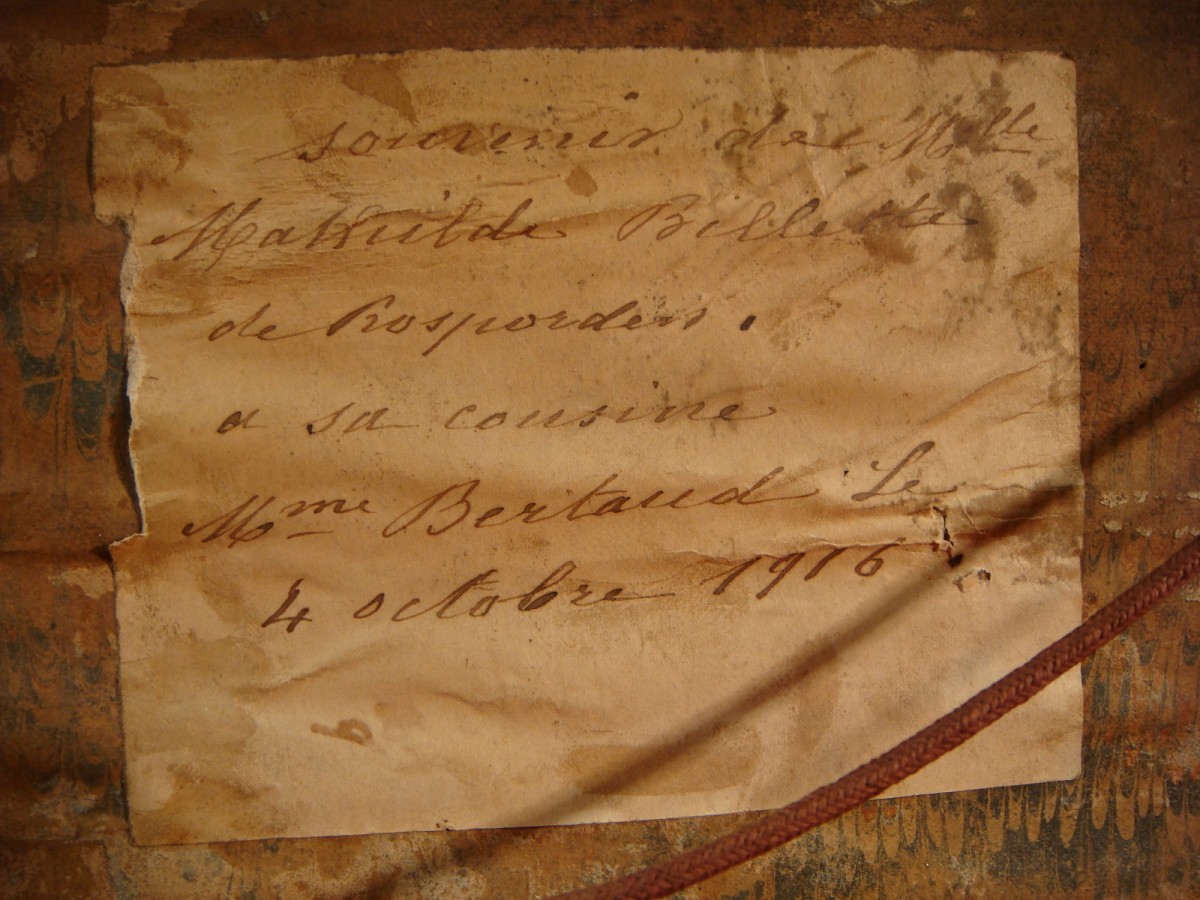 souvenir de Mlle
Mathilde Billette
de Rosporden.
a sa cousine
Mme Bertaud Le
4 octobre 1916